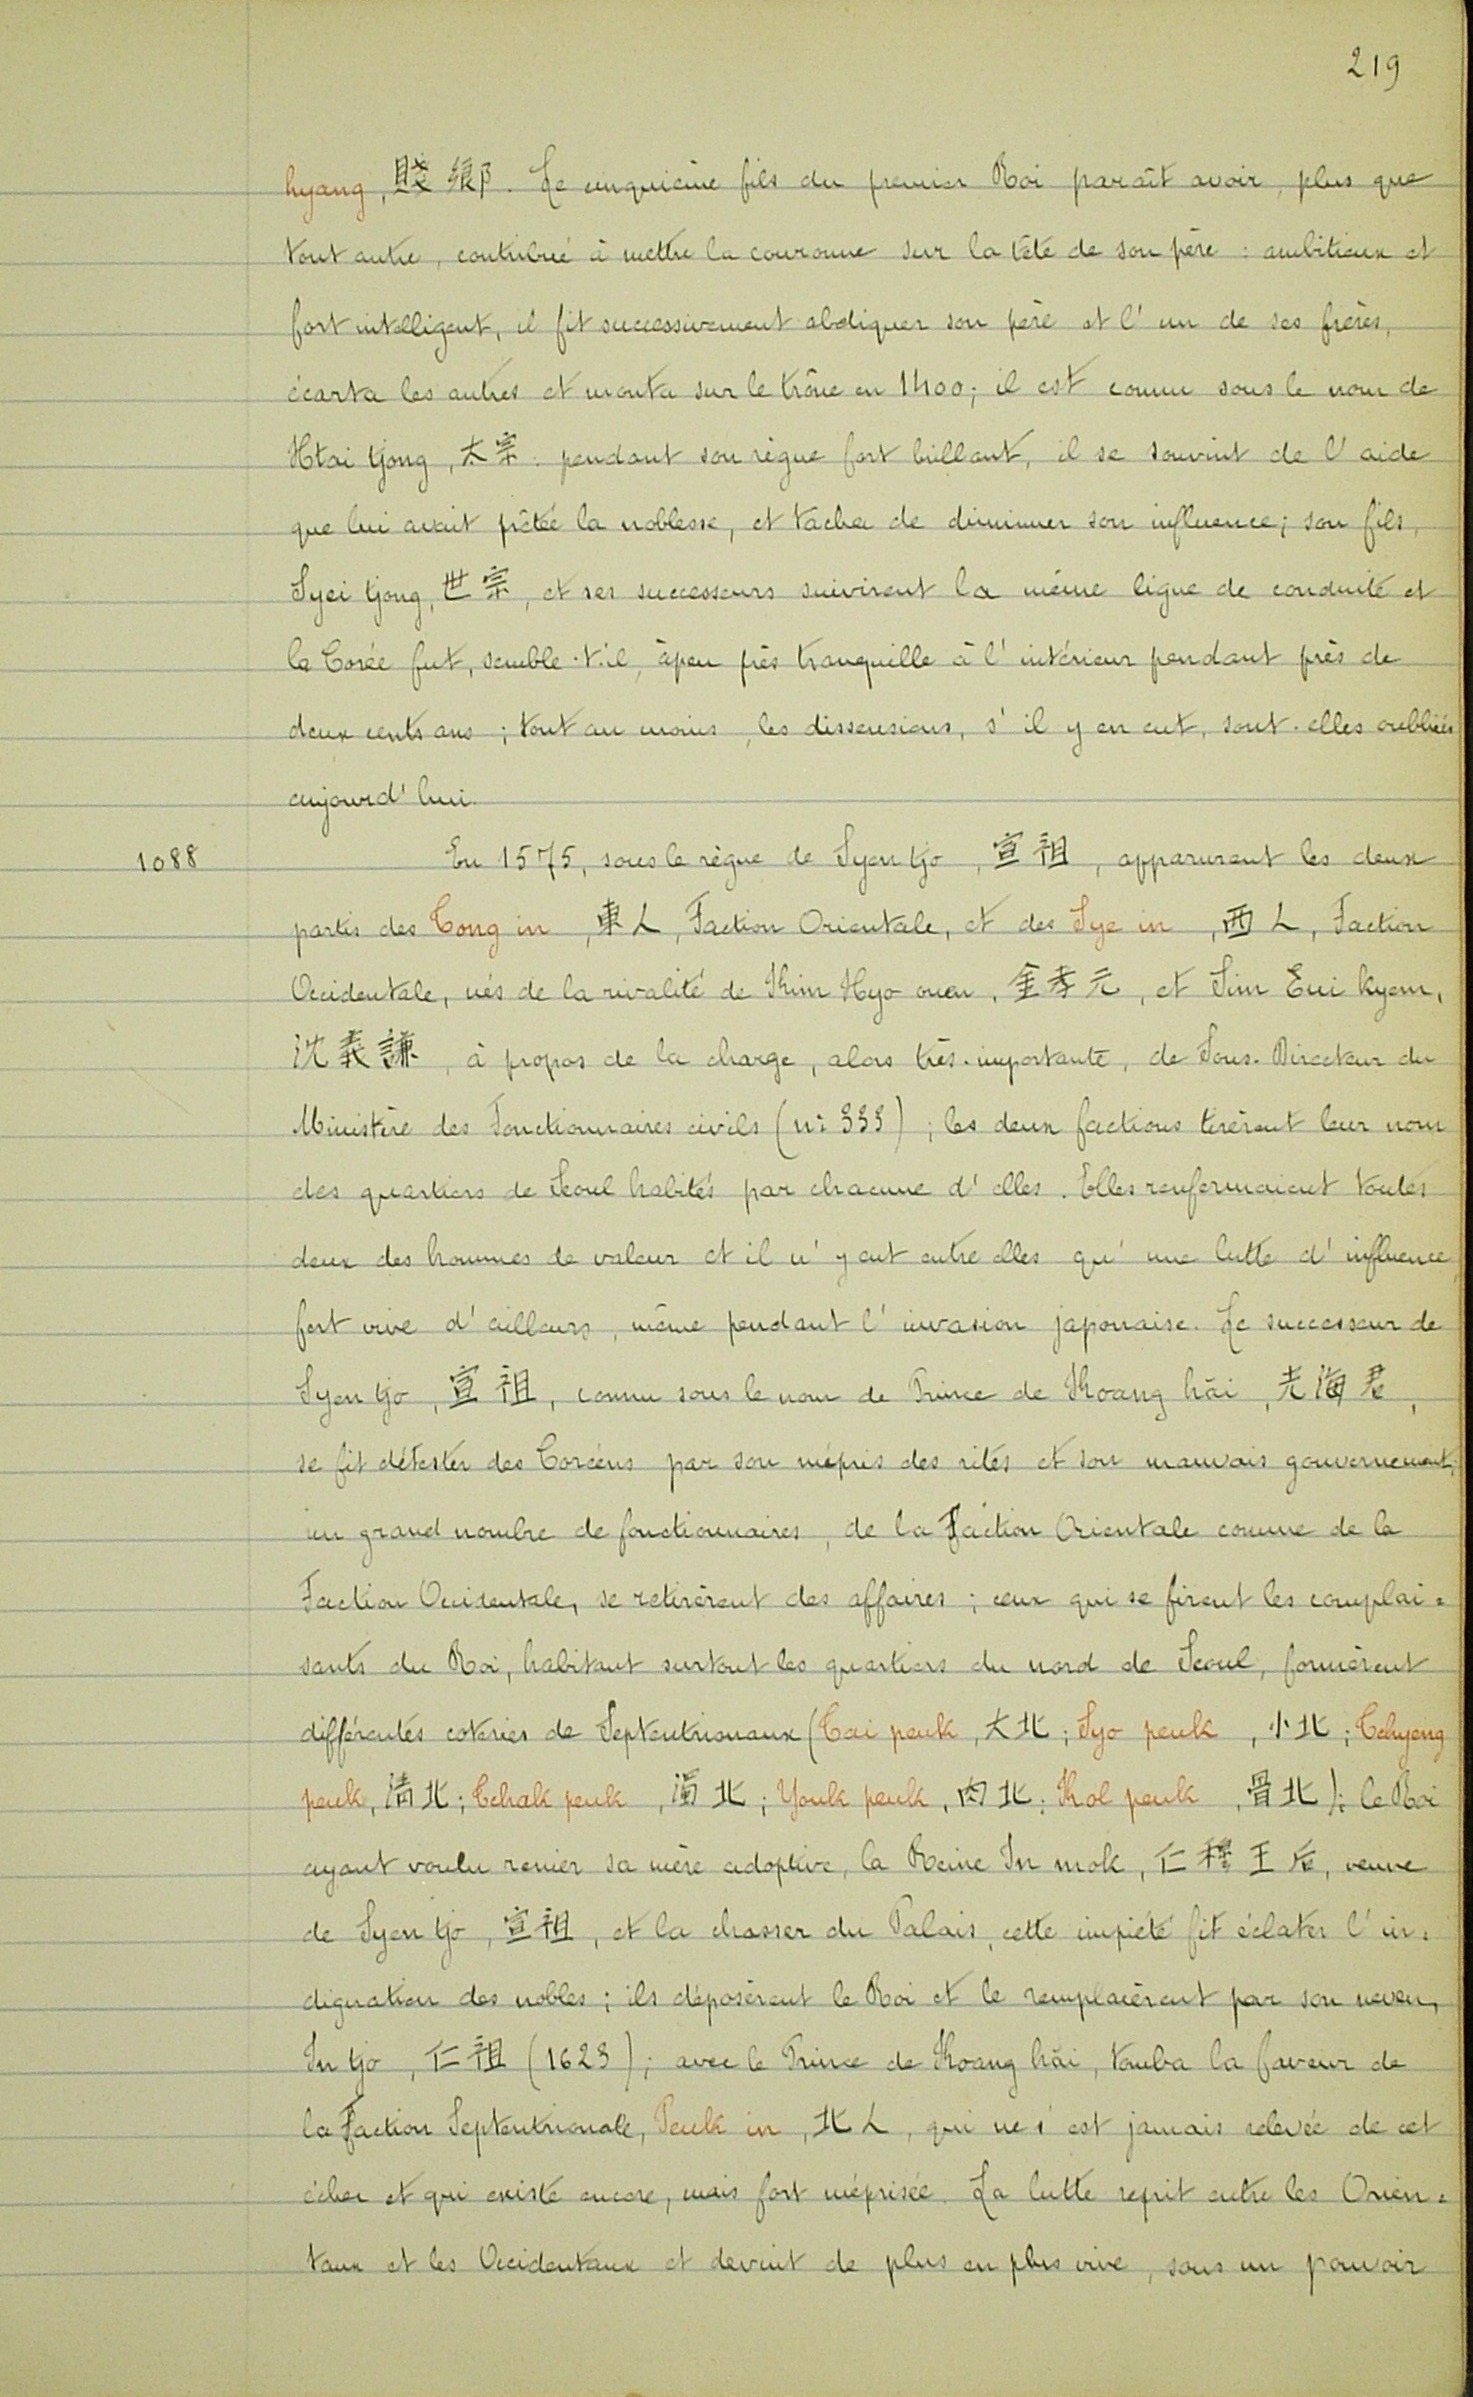 219
hyang, 賤鄕. Le cinquième fils du premier Roi paraît avoir, plus que
tout autre, contribué à mettre la couronne sur la tête de son père : ambitieux et
fort intelligent, il fit successivement abdiquer son père et l'un de ses frères,
écarta les autres et monta sur le trône en 1400; il est connu sous le nom de
Htai tjong, 太宗. pendant son règne fort brillant, il se souvint de l'aide
que lui avait prêtée la noblesse, et tacha de diminuer son influence; son fils,
Syei tjong, 世宗, et ses successeurs suivirent la même ligne de conduite et
la Corée fut, semble-t-il, à peu près tranquille à l'intérieur pendant près de
deux cents ans ; tout au moins, les dissensions, s'il y en eut, sont-elles oubliées
aujourd'hui.
1088 En 1575, sous le règne de Syen tjo, 宣祖, apparurent les deux
partis des Tong in, 東人, Faction Orientale, et des Sye in, 西人, Faction
Occidentale, nés de la rivalité de Kim Hyo ouen, 金孝元, et Sim Eui kyem,
沈義謙, à propos de la charge, alors très-importante, de Sous-Directeur du
Ministère des Fonctionnaires civils (n: 333) ; les deux factions tirèrent leur nom
des quartiers de Seoul habités par chacune d'elles. Elles renfermaient toutes
deux des hommes de valeur et il n'y eut entre elles qu'une lutte d'influence,
fort vive d'ailleurs, même pendant l'invasion japonaise. Le successeur de
Syen tjo, 宣祖, connu sous le nom de Prince de Koang hăi, 光海君,
se fit détester des Coréens par son mépris des rites et son mauvais gouvernement;
un grand nombre de fonctionnaires, de la Faction Orientale comme de la
Faction Occidentale, se retirèrent des affaires ; ceux qui se firent les complai=
sants du Roi, habitant surtout les quartiers du nord de Seoul, formèrent
différentes coteries de Septentrionaux (Tai peuk, 大北; Syo peuk, 小北; Tchyeng
peuk, 淸北; Tchak peuk, 濁北; Youk peuk, 肉北; Kol peuk, 骨北); le Roi
ayant voulu renier sa mère adoptive, la Reine In mok, 仁穆王后, veuve
de Syen tjo, 宣祖, et la chasser du Palais, cette impiété fit éclater l'in=
dignation des nobles ; ils déposèrent le Roi et le remplacèrent par son neveu,
In tjo, 仁祖 (1623); avec le Prince de Koang hăi, tomba la faveur de
la Faction Septentrionale, Peuk in, 北人, qui ne s'est jamais relevée de cet
échec et qui existe encore, mais fort méprisée. La lutte reprit entre les Orien=
taux et les Occidentaux et devint de plus en plus vive, sous un pouvoir